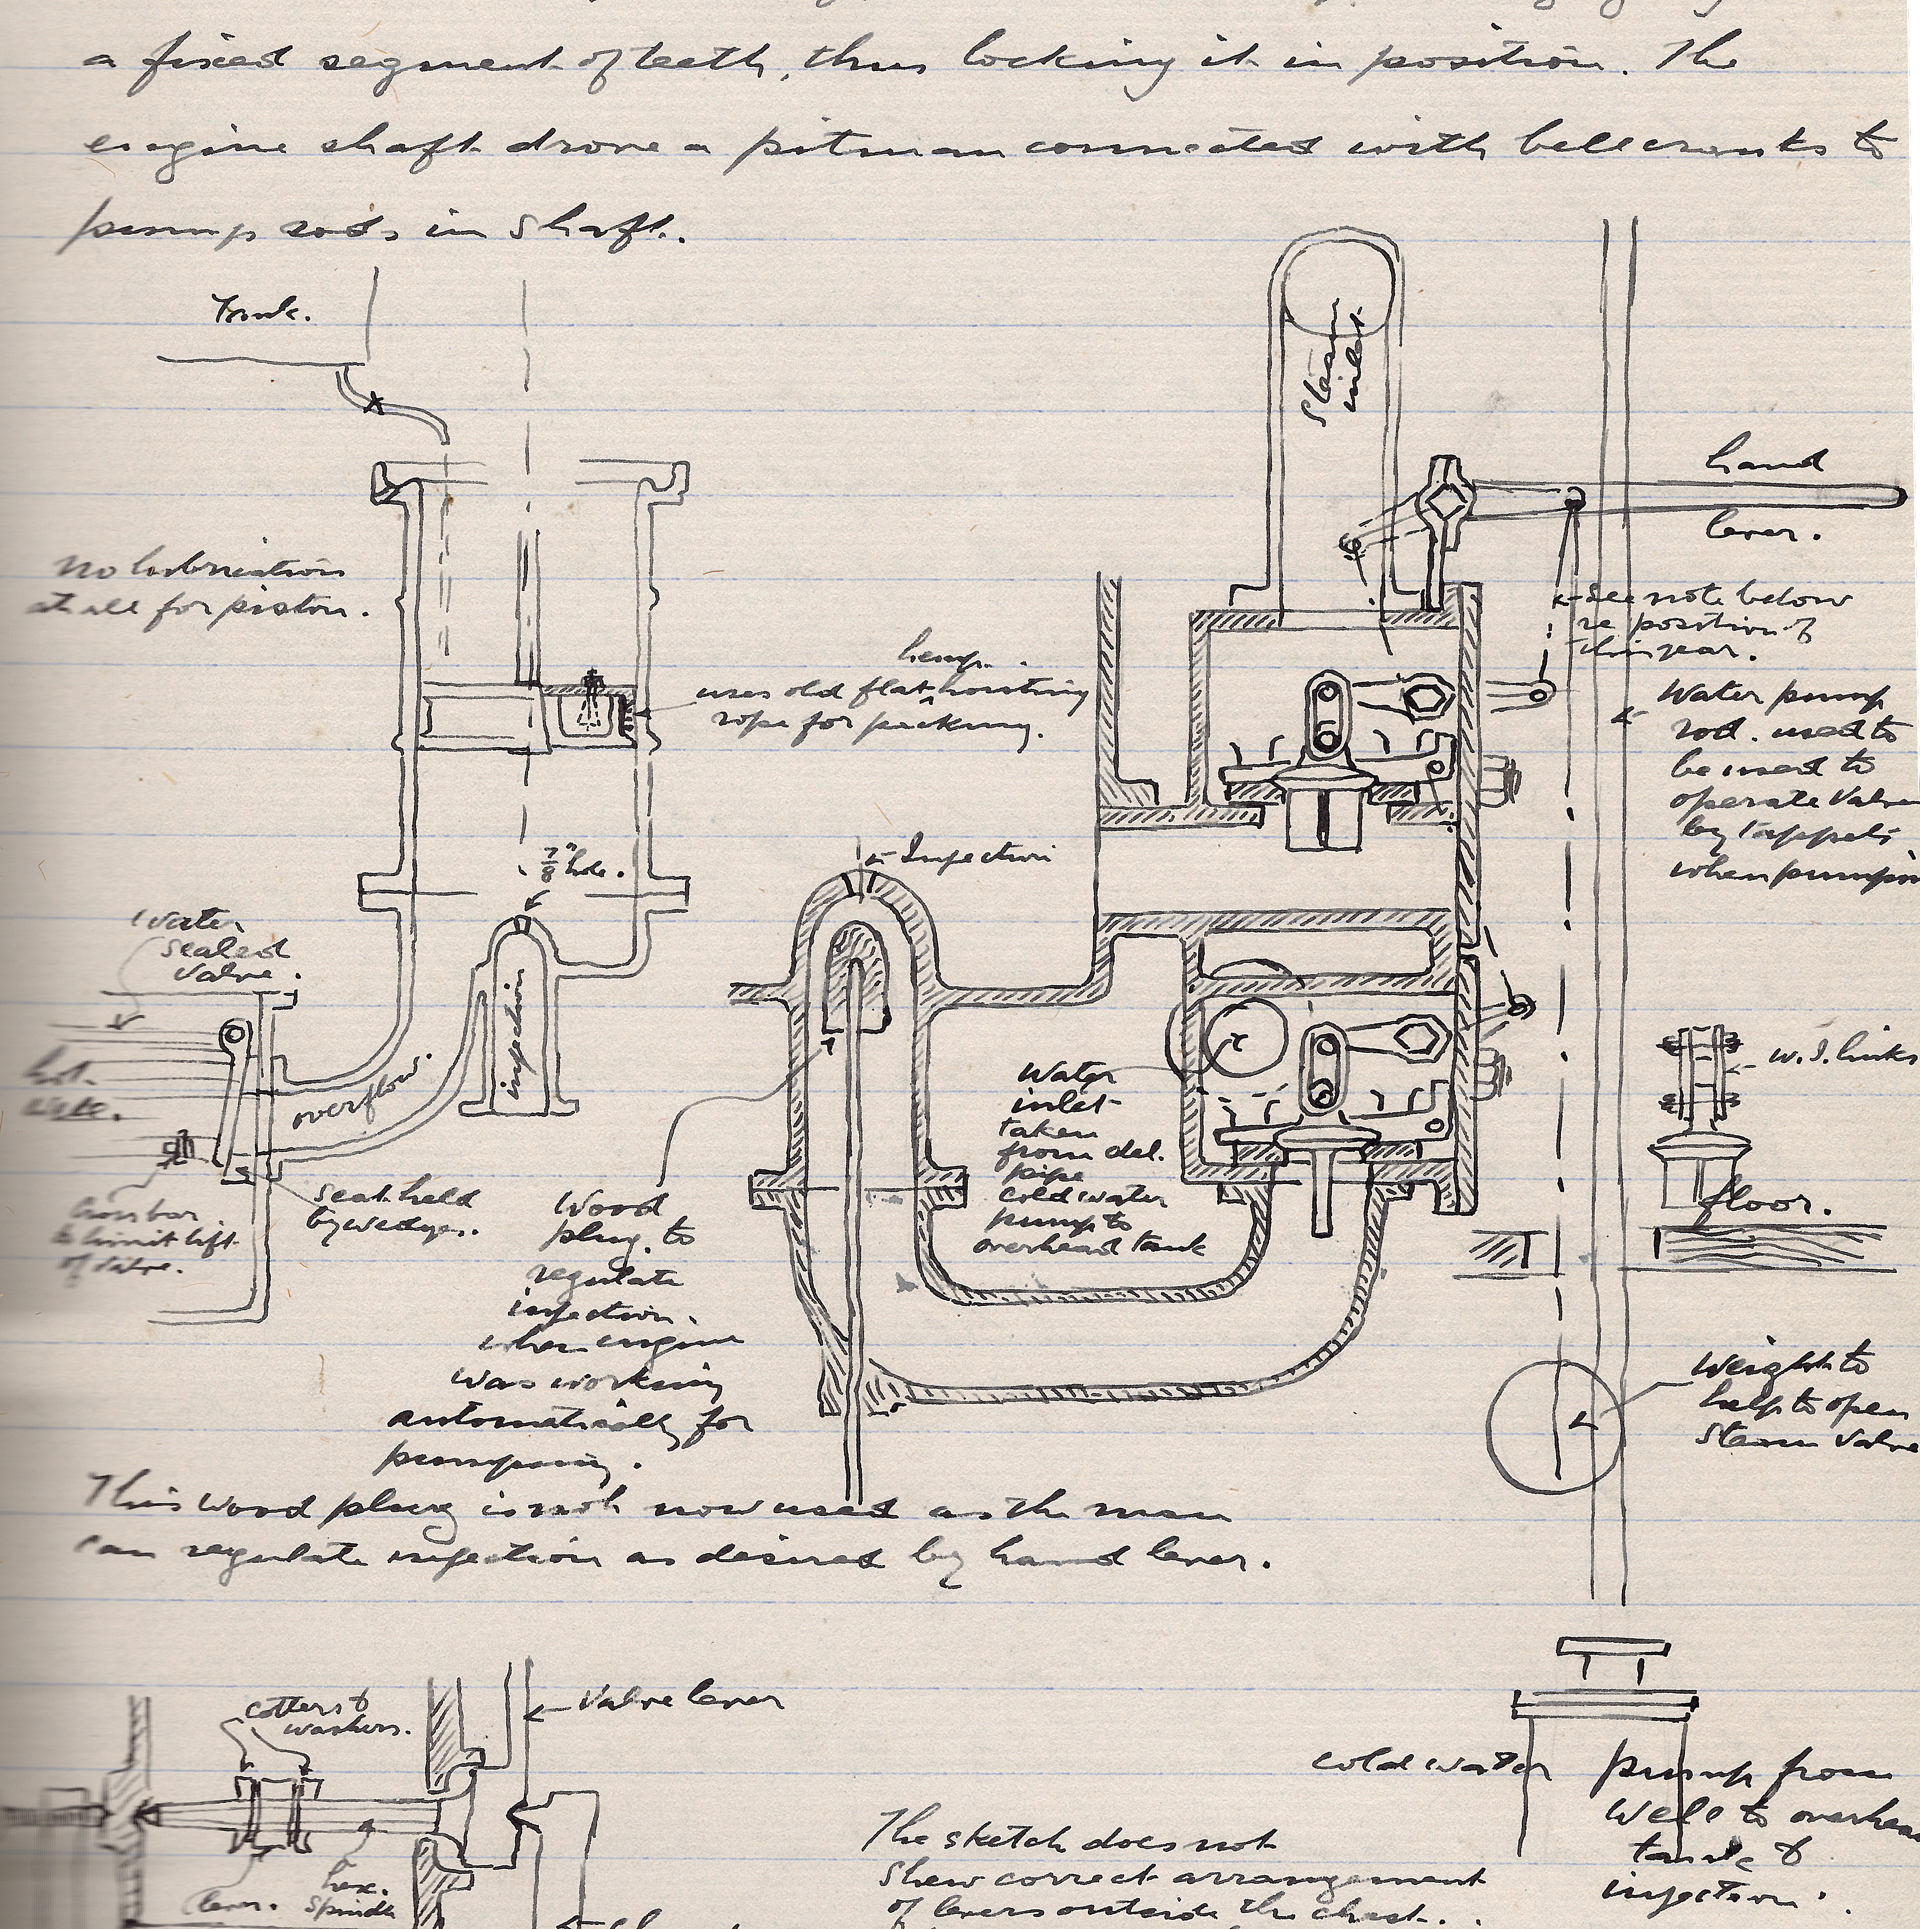 a fixed segment of teeth, thus locking it in position. The
engine shaft drove a pitman connected with bellcranks to
pump rods in shaft.
Tank.
Steam
inlet
hand
lever.
No lubrication
at all for piston.
see note below
re position of
this gear.
hemp
uses old flat ^ hoisting
rope for packing.
Water pump
rod. used to
be used to
operate Valve
by tappets
when pumpin
7/8" hole.
Injection
Water
sealed
Valve.
hot
injection
overflow.
Water
inlet
taken
from del.
pipe
cold water
pump to
overhead tank
W.I. links
floor.
Cross bar
to limit lift
of Valve.
seat held
by wedges.
Wood
plug to
regulate
injection.
when engine
was working
automatically for
pumping.
Weight to
help to open
Steam Valve
This wood plug is not now used as the man
can regulate injection as desired by hand lever.
cotters &
washers.
Valve lever
lever.
hex.
Spindle
cold water pump from
Well to overhea
tank &
injection.
The sketch does not
shew correct arrangement
of levers outside the chest.